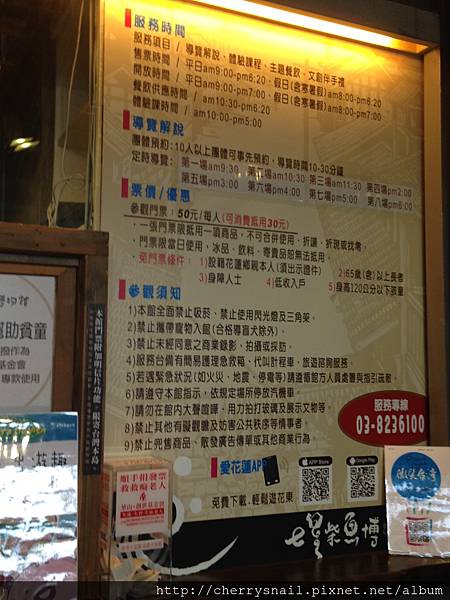 服務時間
服務項目 / 導覽解說、體驗課程、主題餐飲、文創伴手禮
售票時間 / 平日am9:00-pm6:20、假日(含寒暑假)am8:00-pm6:20
開放時間 / 平日am9:00-pm7:00、假日(含寒暑假)am8:00-pm7:00
餐飲供應時間 / am10:30-pm6:20
體驗課時間 / am10:00-pm5:00
導覽解說
團體預約:10人以上團體可事先預約，導覽時間10-30分鐘
定時導覽: 第一場am9:30 第二場am10:30 第三場am11:30 第四場pm2:00
第五場pm3:00 第六場pm4:00 第七場pm5:00 第八場pm6:00
票價/優惠
參觀門票: 50元/每人(可消費抵用30元)
‧一張門票限抵用一項商品，不可合併使用、折讓、折現或找零。
‧門票限當日使用、冰品、飲料、寄賣品恕無法抵用。
‧免門票條件: 1)設籍花蓮鄉親本人(須出示證件) 2)65歲(含)以上長者
3)身障人士 4)低收入戶 5)身高120公分以下孩童
參觀須知
1)本館全面禁止吸菸、禁止使用閃光燈及三角架。
2)禁止攜帶寵物入館(合格導盲犬除外)。
3)禁止未經同意之商業錄影、拍攝或採訪。
4)服務台備有簡易護理急救箱、代叫計程車、旅遊諮詢服務。
5)若遇緊急狀況(如火災、地震、停電等)請遵循館方人員處置與指引疏散。
6)請遵守本館指示，依規定場所停放汽機車。
7)請勿在館內大聲喧嘩、用力拍打玻璃及展示文物等
8)禁止其他有礙觀瞻及妨害公共秩序等情事者。
9)禁止兜售商品、散發廣告傳單或其他商業行為
服務專線
03-8236100
愛花蓮APP
APP Store
Google Play
免費下載，輕鬆遊花東
七星柴魚博
幫助貧童
撥作為
基金會
專款使用
本館門票附加明信片功能，限寄台灣本島
順手捐發票
救救癱老人
華山‧創世基金會
微笑台灣
http://cherrysnail.pixnet.net/album